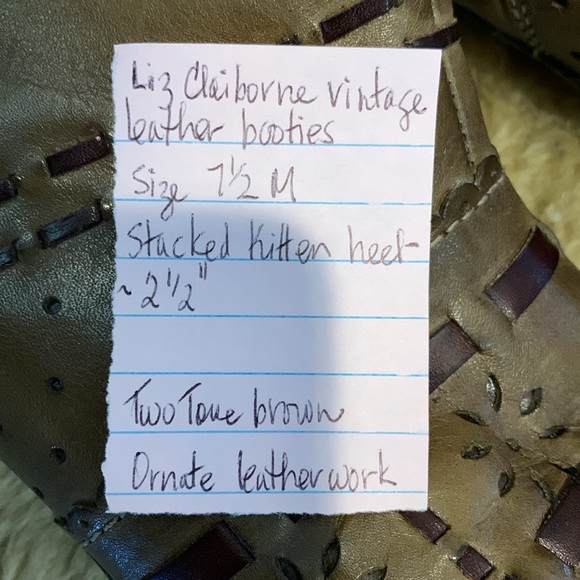 Liz Claiborne vintage
leather booties
Size 7 1/2 M
Stacked Kitten heel-
~ 2 1/2"
Two Tone brown
Ornate leatherwork